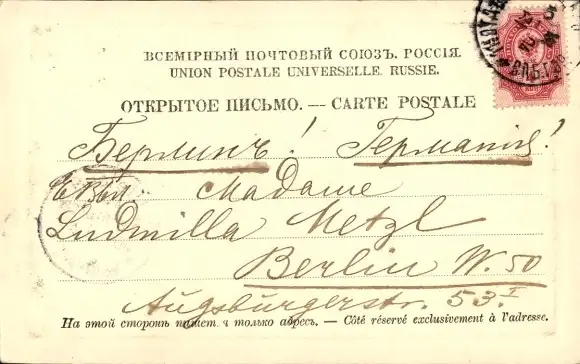 ВСЕМІРНЫЙ ПОЧТОВЫЙ СОЮЗЪ. РОССІЯ.
UNION POSTALE UNIVERSELLE. RUSSIE.
ОТКРЫТОЕ ПИСЬМО. — CARTE POSTALE
Берлинъ! Германія!
Madame
Ludmilla Metzl
Berlin W. 50
Augsburgerstr. 53.I
На этой сторонѣ пишется только адресъ. — Côté réservé exclusivement à l'adresse.